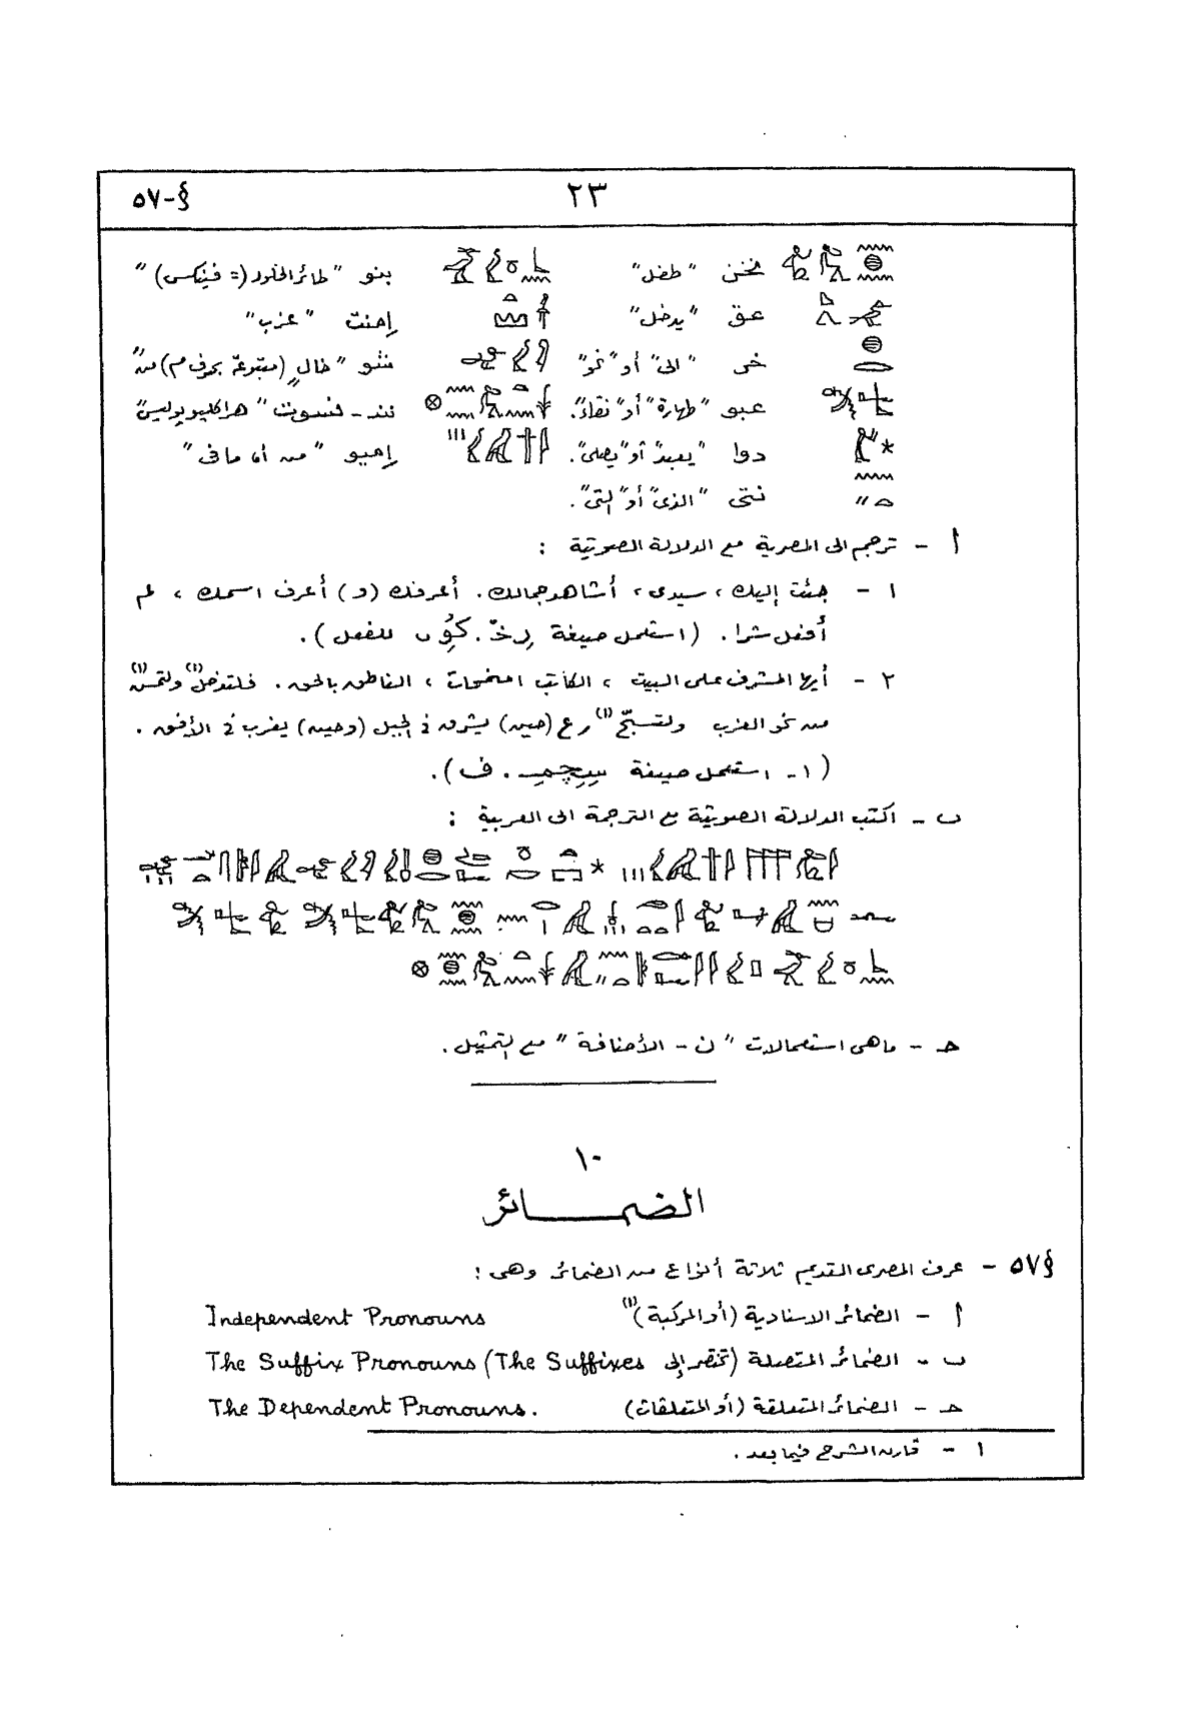 §-٥٧ ٢٣
نخن "طفل" بنو "طائر الخلود (= فينكس)"
عق "يدخل" إمنت "غرب"
خر "الى" أو "نحو" شو "خالٍ (متبوعة بحرف م) من"
عبو "طهارة" أو "نقاء". ننـ - نسوت "هراكليوبوليس"
دوا "يعبد" أو "يصلى". إميو "من أو ما فى"
نتى "الذى" أو "التى".
أ - ترجم الى المصرية مع الدلالة الصوتية :
١ - جئت إليك ، سيدى ، أشاهد جمالك . أعرفك (و) أعرف اسمك ، لم
أفعل شرا . (استعمل صيغة رخ . كُو للفعل) .
٢ - أيها المشرف على البيت ، الكاتب امنمحات ، الناطق بالحق . فلتدخل (١) ولتخرج (١)
من نحو الغرب ولتسبّح (١) رع (حين) يشرق فى الجبل (وحين) يغرب فى الأفق .
(١ - استعمل صيغة سچم . ف) .
ب - اكتب الدلالة الصوتية مع الترجمة الى العربية :
حـ - ماهى استعمالات "ن - الأضافة" مع التمثيل .
١٠
الضمائر
§٥٧ - عرف المصرى القديم ثلاثة أنواع من الضمائر وهى :
أ - الضمائر الاسنادية (أو المركبة) (١) Independent Pronouns
ب - الضمائر المتصلة (تختصر إلى The Suffix Pronouns (The Suffixes
حـ - الضمائر المتعلقة (أو المتعلقات) The Dependent Pronouns.
١ - قارن الشرح فيما بعد .